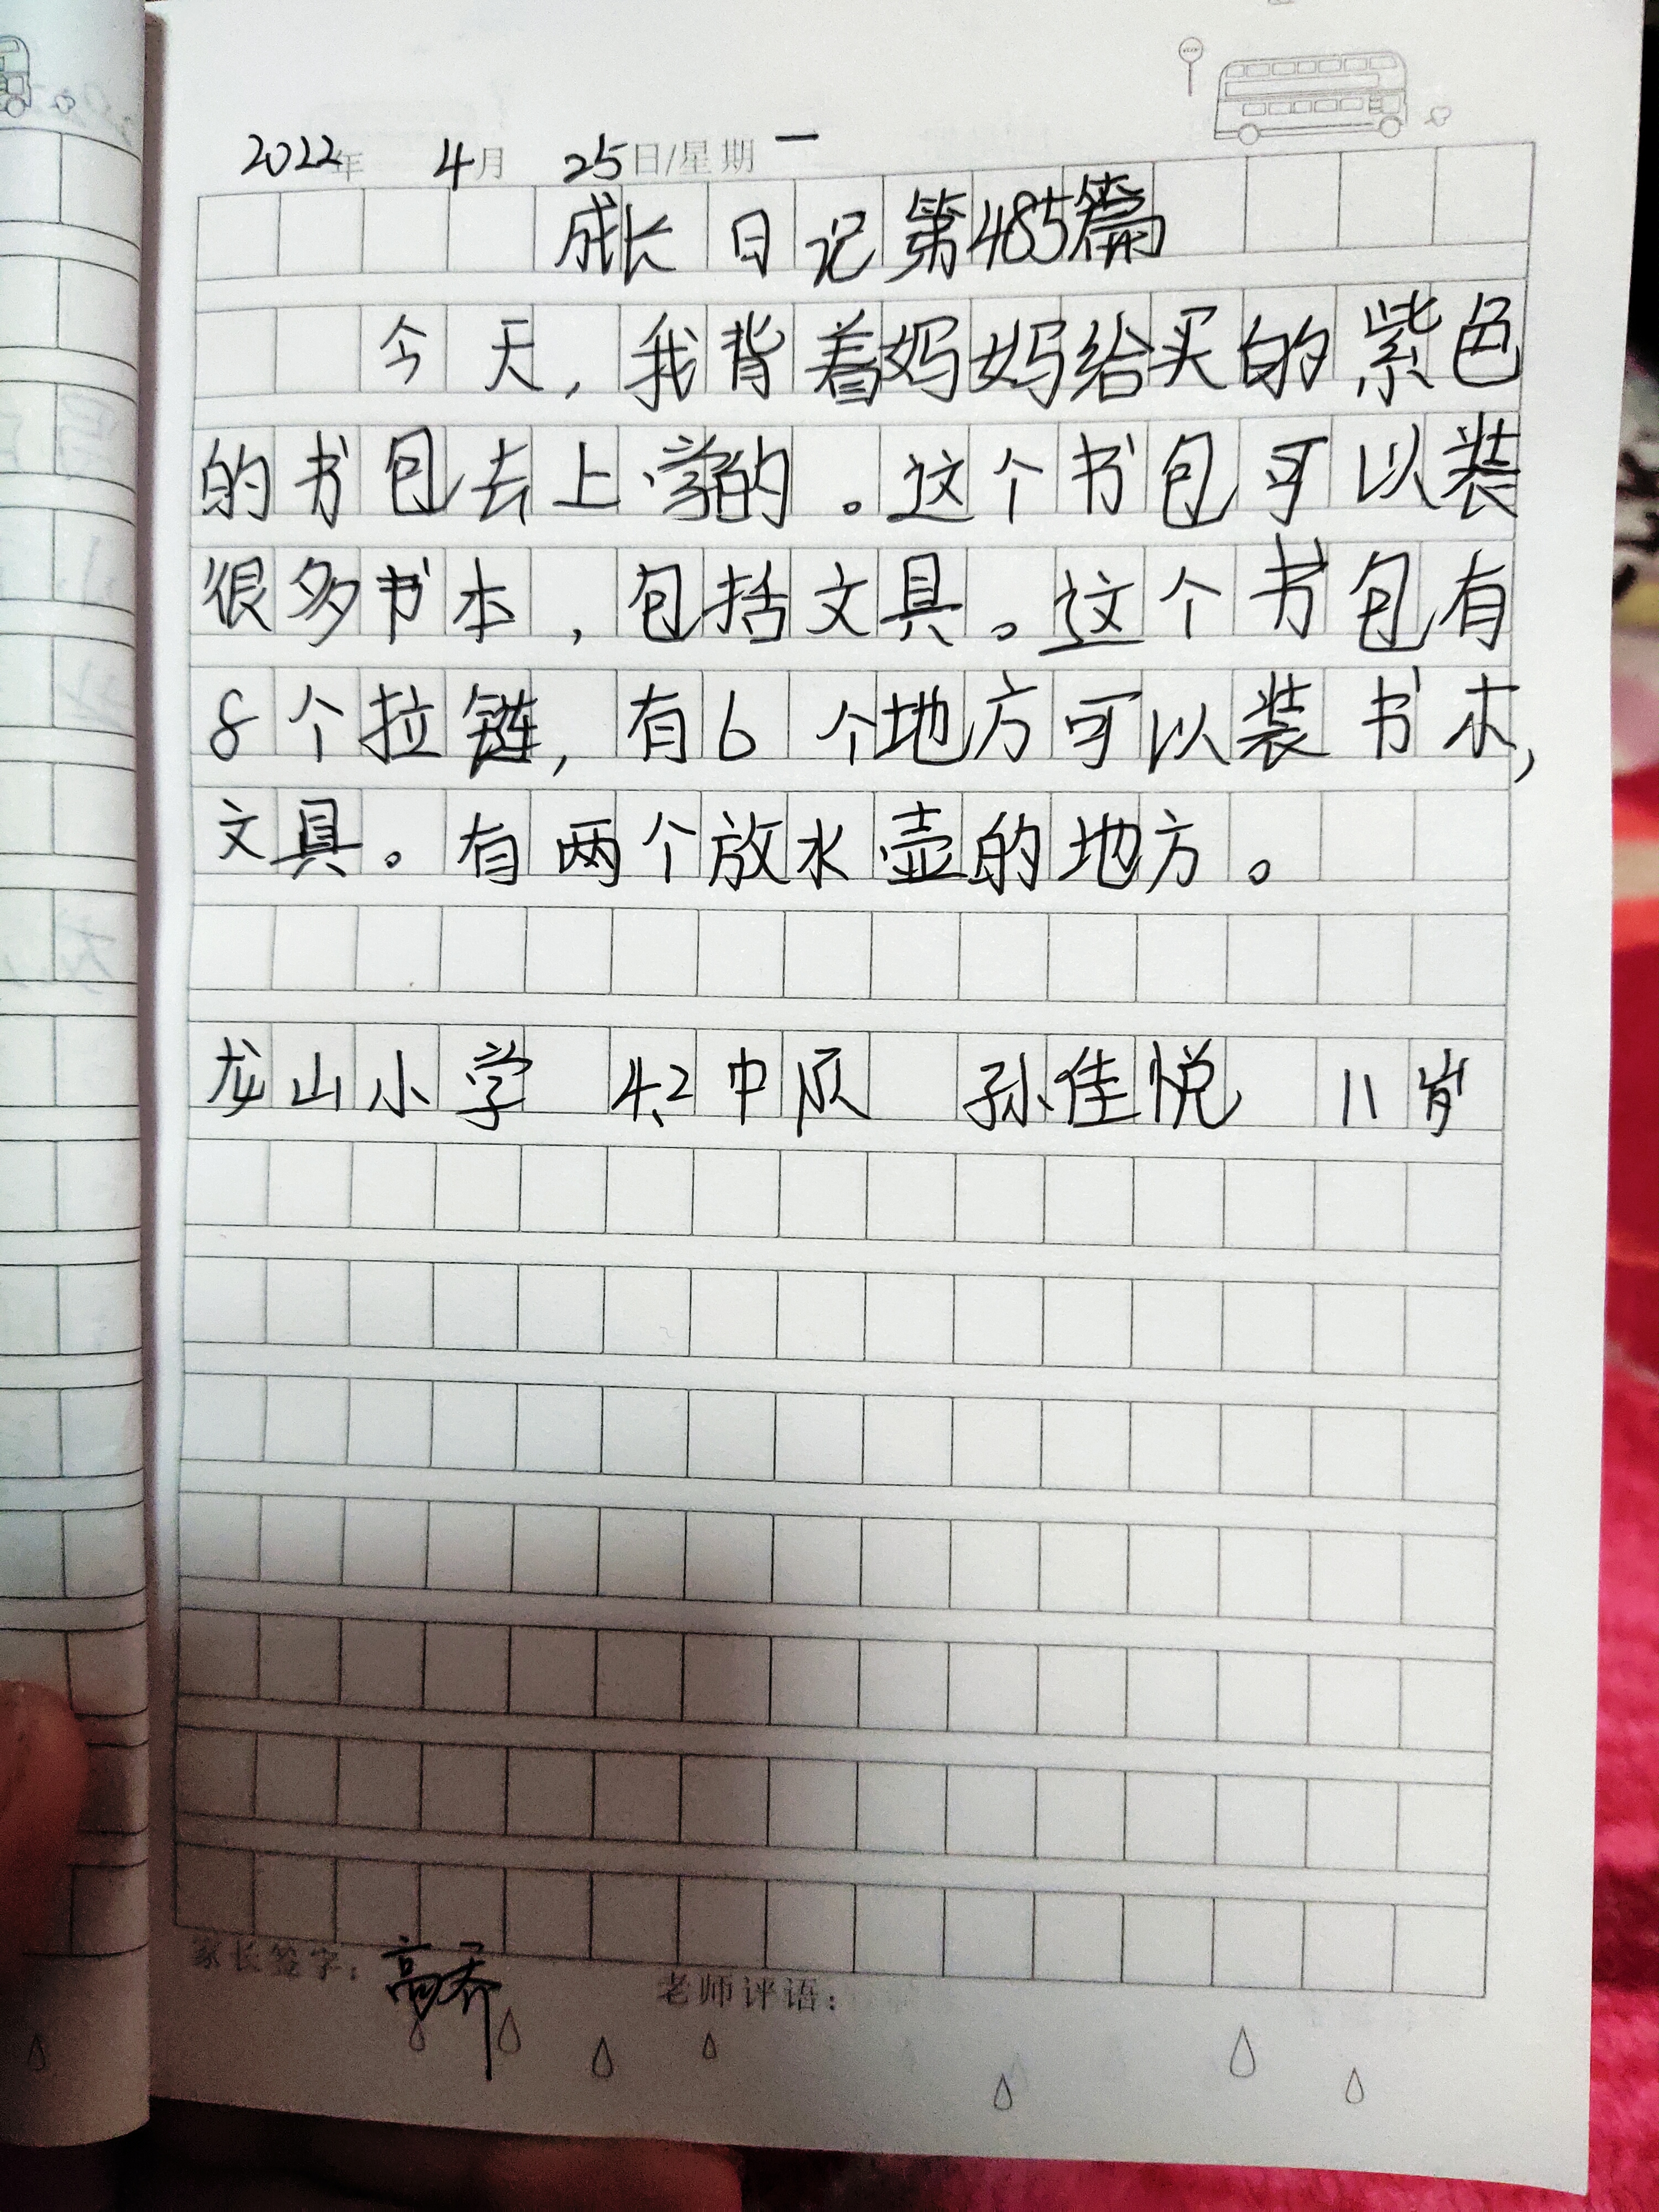 2022年 4月 25日/星期一
成长日记第485篇
今天,我背着妈妈给买的紫色
的书包去上学的。这个书包可以装
很多书本,包括文具。这个书包有
8个拉链,有6个地方可以装书本,
文具。有两个放水壶的地方。
龙山小学 4.2中队 孙佳悦 11岁
家长签字:高乔 老师评语: